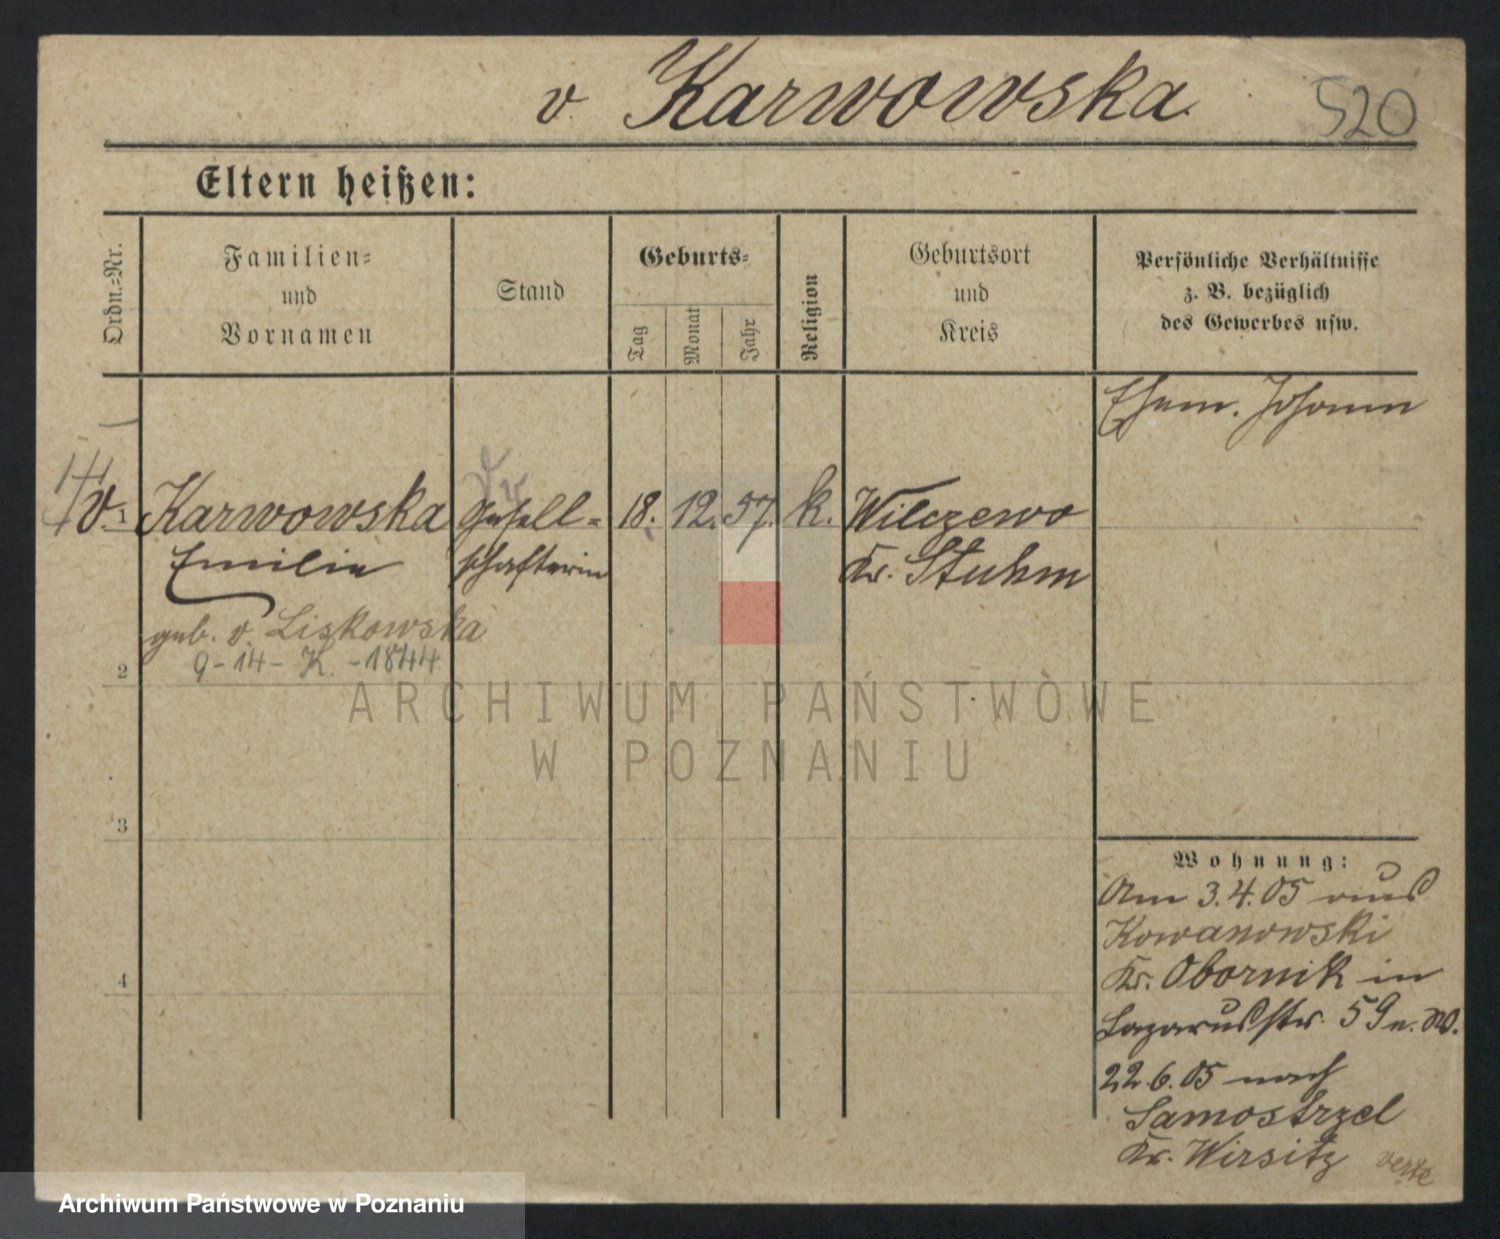 v. Karwowska
520
Eltern heißen:
Ordn.-Nr.
Familien-
und
Vornamen
Stand
Geburts-
Tag
Monat
Jahr
Religion
Geburtsort
und
Kreis
Persönliche Verhältnisse
z. B. bezüglich
des Gewerbes usw.
Ehem. Johann
v. 1 Karwowska Gesell- 18. 12. 57. k. Wilczewo
Emilie schafterin Kr. Stuhm
geb. v. Liskowska
9-14- K. -1844
2
ARCHIWUM PAŃSTWOWE
W POZNANIU
3
4
Wohnung:
Am 3.4.05 aus
Kowanowski
Kr. Obornik in
Lazarusstr. 59
22.6.05 nach
Samostrzel
Kr. Wirsitz verte
Archiwum Państwowe w Poznaniu